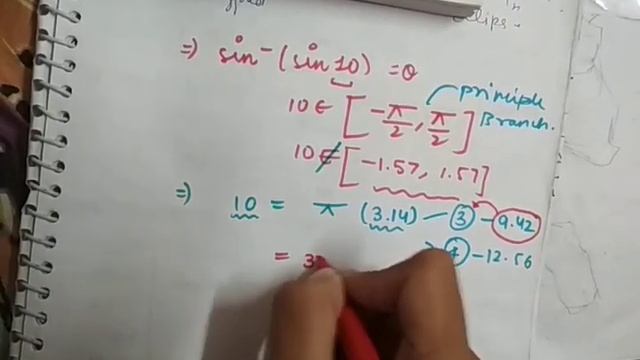 ⇒ sin⁻(sin 10) = θ
10 ∈ [-π/2, π/2] principle Branch.
10 ∉ [-1.57, 1.57]
⇒ 10 = π (3.14) — 3 - 9.42
= 3 4 - 12.56